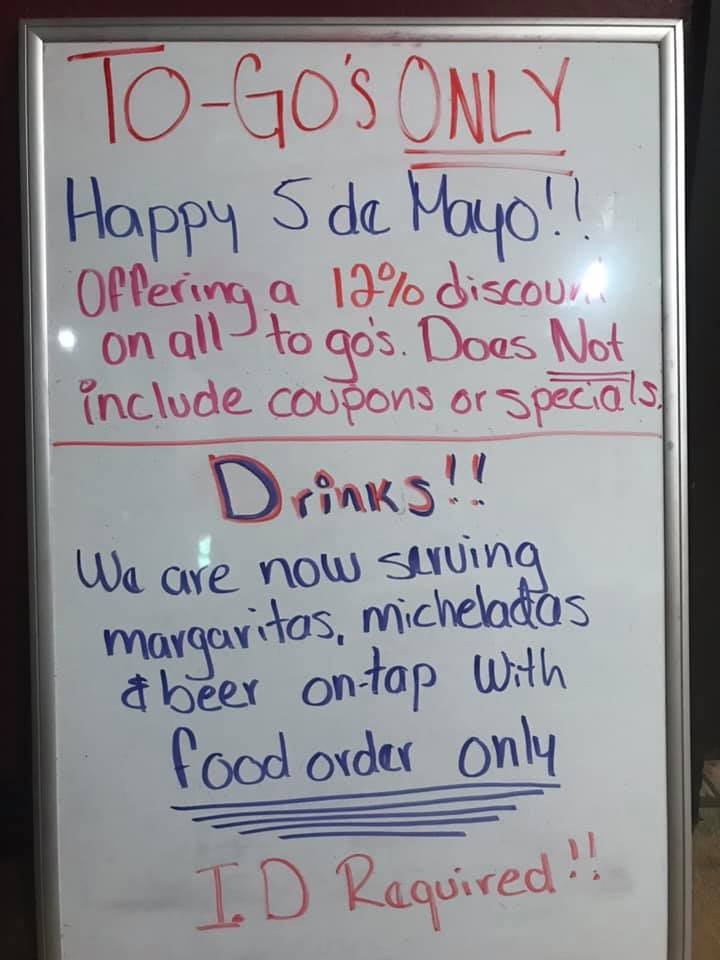 TO-GO'S ONLY
Happy 5 de Mayo!!
Offering a 12% discount
on all to go's. Does Not
include coupons or specials.
Drinks!!
We are now serving
margaritas, micheladas
& beer on-tap with
food order only
I.D Required!!